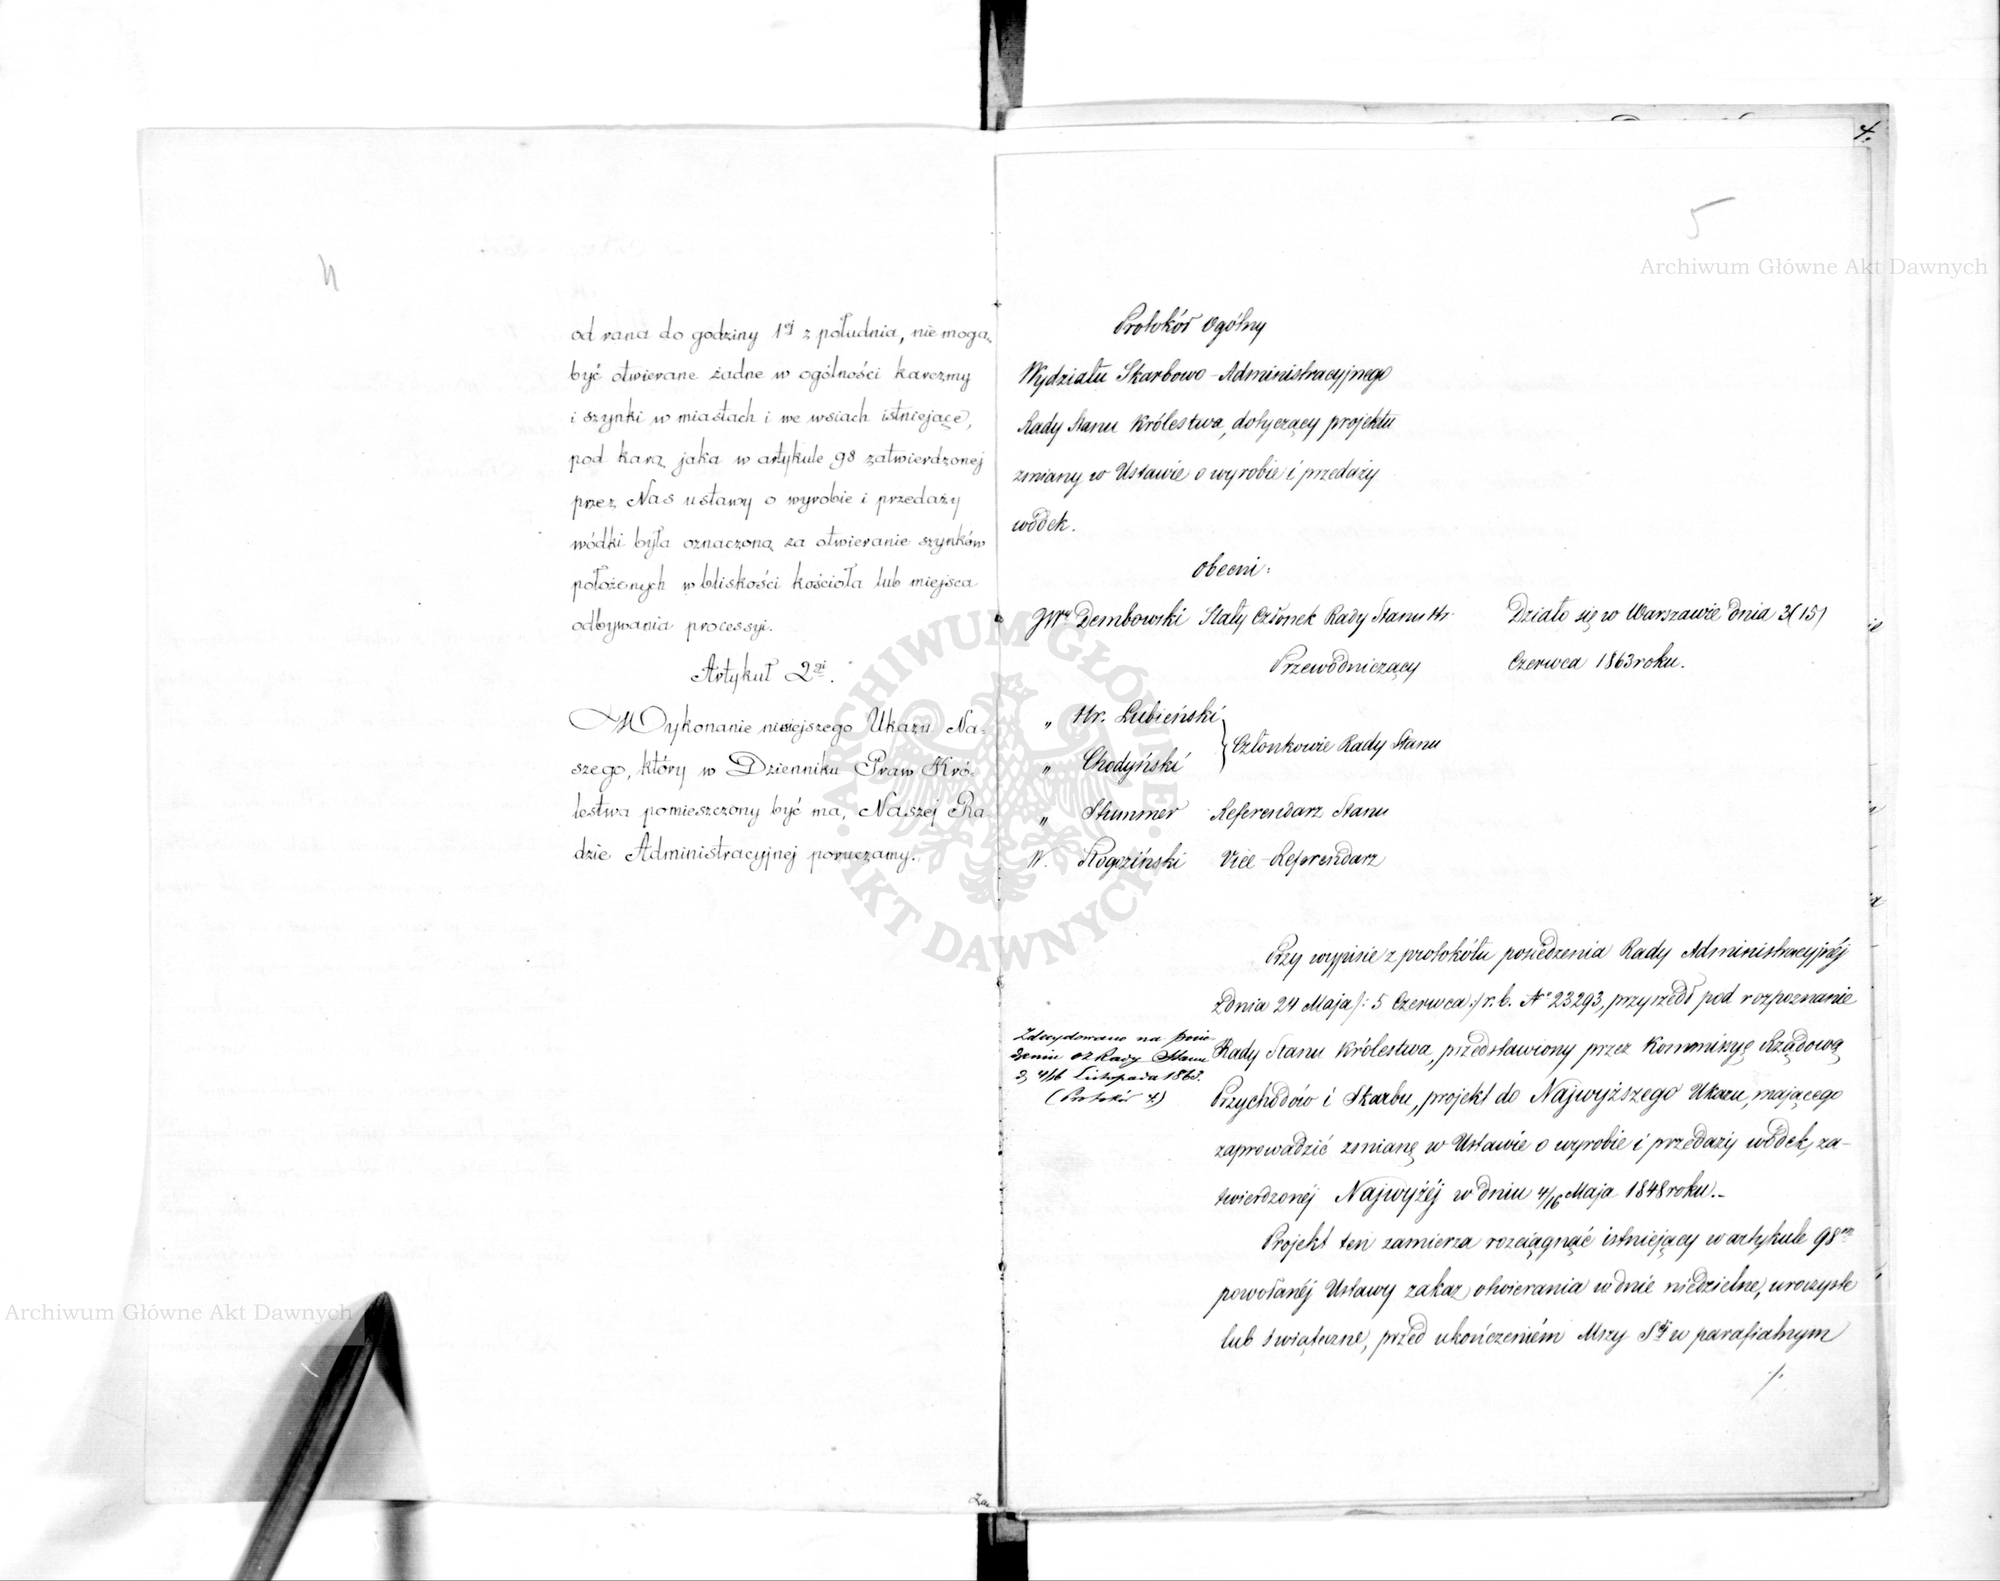 4
od rana do godziny 1ej z południa, nie mogą
być otwierane żadne w ogólności karczmy
i szynki w miastach i we wsiach istniejące,
pod karą jaka w artykule 98 zatwierdzonej
przez Nas ustawy o wyrobie i przedaży
wódki była oznaczoną za otwieranie szynków
położonych w bliskości kościoła lub miejsca
odbywania processyi.
Artykuł 2gi.
Wykonanie niniejszego Ukazu Na-
szego, który w Dzienniku Praw Kró-
lestwa pomieszczony być ma, Naszej Ra-
dzie Administracyjnej poruczamy.
4.
5
Protokół Ogólny
Wydziału Skarbowo-Administracyjnego
Rady Stanu Królestwa, dotyczący projektu
zmiany w Ustawie o wyrobie i przedaży
wódek.
Obecni:
JWy Dembowski Stały Członek Rady Stanu Kr.
Przewodniczący
" Hr. Łubieński
" Chodyński
Członkowie Rady Stanu
" Stummer Referendarz Stanu
W. Rogoziński Vice-Referendarz
Działo się w Warszawie dnia 3(15)
Czerwca 1863 roku.
Przy wypisie z protokółu posiedzenia Rady Administracyjnéj
z dnia 24 Maja /: 5 Czerwca :/ r. b. No 23293, przyszedł pod rozpoznanie
Rady Stanu Królestwa, przedstawiony przez Kommissyę Rządową
Przychodów i Skarbu, projekt do Najwyższego Ukazu, mającego
zaprowadzić zmianę w Ustawie o wyrobie i przedaży wódek, za-
twierdzonéj Najwyżéj w dniu 4/16 Maja 1848 roku.-
Projekt ten zamierza rozciągnąć istniejący w artykule 98m
powołanéj Ustawy zakaz otwierania w dnie niedzielne, uroczyste
lub świąteczne, przed ukończeniem Mszy Sej w parafialnym
./.
Zdecydowano na posie-
dzeniu oz Rady Stanu
d. 4/16 Listopada 1863.
(Protokół 4.)
Archiwum Główne Akt Dawnych
Archiwum Główne Akt Dawnych
ARCHIWUM GŁÓWNE AKT DAWNYCH